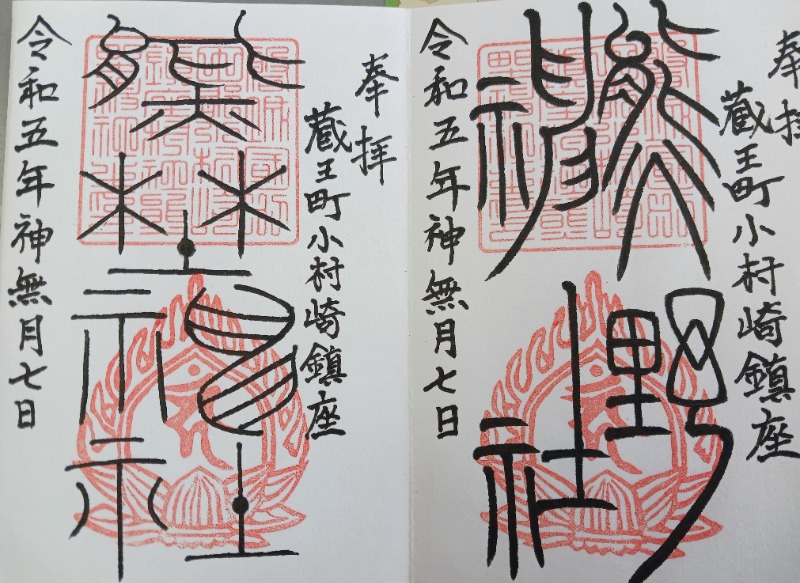 奉拝
蔵王町小村崎鎮座
熊野
神社
令和五年神無月七日
奉拝
蔵王町小村崎鎮座
熊
埜
神
社
令和五年神無月七日